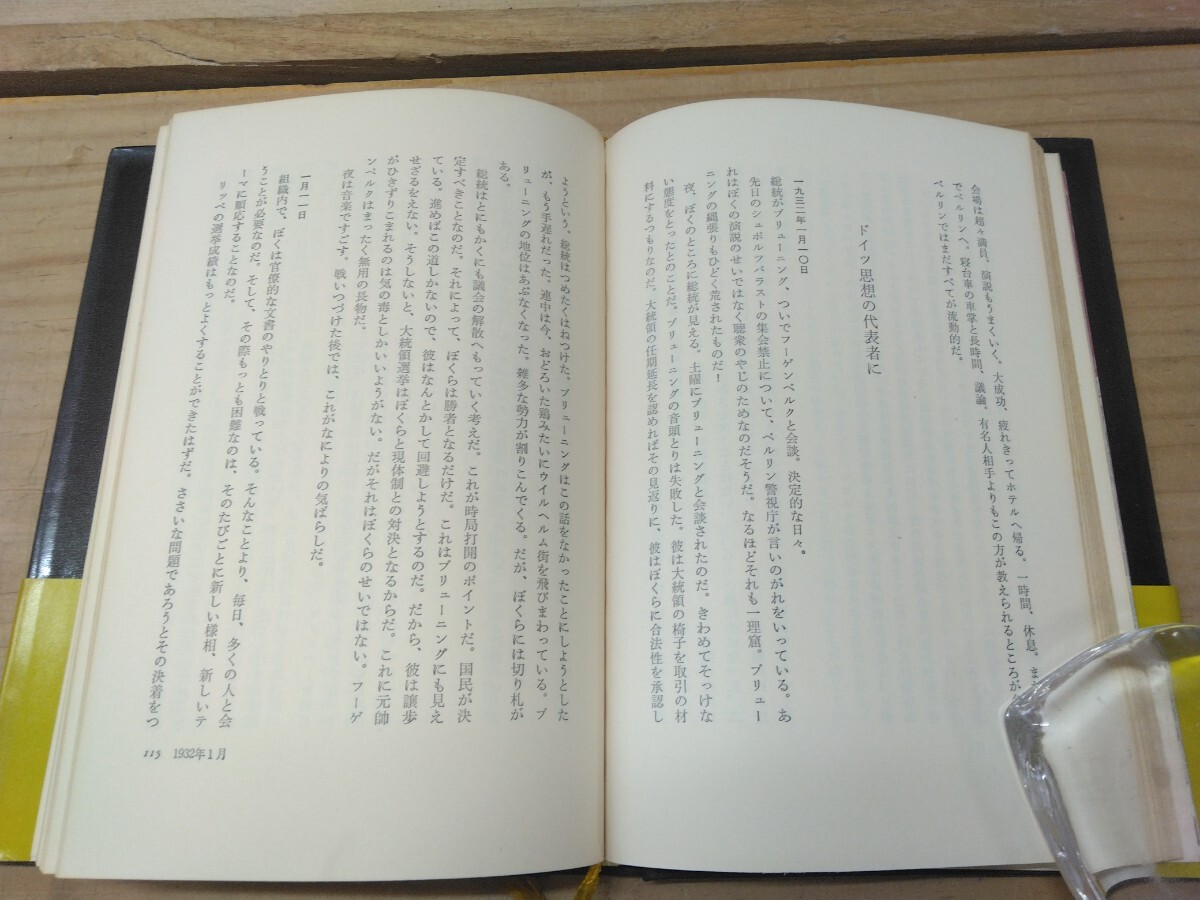 会場は超々満員、演説もうまくいく。大成功、疲れきってホテルへ帰る。一時間、休息。ま
でベルリンへ。寝台車の車掌と長時間、議論。有名人相手よりもこの方が教えられるところが
ベルリンではまだすべてが流動的だ。
ドイツ思想の代表者に
一九三二年一月一〇日
総統がブリューニング、ついでフーゲンベルクと会談。決定的な日々。
先日のシュポルツパラストの集会禁止について、ベルリン警視庁が言いのがれをいっている。あ
れはぼくの演説のせいではなく聴衆のやじのためなのだそうだ。なるほどそれも一理窟。ブリュー
ニングの縄張りもひどく荒されたものだ!
夜、ぼくのところに総統が見える。土曜にブリューニングと会談されたのだ。きわめてそっけな
い態度をとったとのことだ。ブリューニングの音頭とりは失敗した。彼は大統領の椅子を取引の材
料にするつもりなのだ。大統領の任期延長を認めればその見返りに、彼はぼくらに合法性を承認し
ようという、総統はつめたくはねつけた。ブリューニングはこの話をなかったことにしようとした
が、もう手遅れだった。連中は今、おどろいた鶏みたいにウイルヘルム街を飛びまわっている。ブ
リューニングの地位はあぶなくなった。雑多な勢力が割りこんでくる。だが、ぼくらには切り札が
ある。
総統はとにもかくにも議会の解散へもっていく考えだ。これが時局打開のポイントだ。国民が決
定すべきことなのだ。それによって、ぼくらは勝者となるだけだ。これはブリューニングにも見え
ている。進めばこの道しかないので、彼はなんとかして回避しようとするのだ。だから、彼は譲歩
せざるをえない。そうしないと、大統領選挙はぼくらと現体制との対決となるからだ。これに元帥
がひきずりこまれるのは気の毒としかいいようがない。だがそれはぼくらのせいではない。フーゲ
ンベルクはまったく無用の長物だ。
夜は音楽ですごす。戦いつづけた後では、これがなによりの気ばらしだ。
一月一一日
組織内で、ぼくは官僚的な文書のやりとりと戦っている。そんなことより、毎日、多くの人と会
うことが必要なのだ。そして、その際もっとも困難なのは、そのたびごとに新しい様相、新しいテ
ーマに順応することなのだ。
リッペの選挙成績はもっとよくすることができたはずだ。ささいな問題であろうとその決着をつ
115 1932年1月